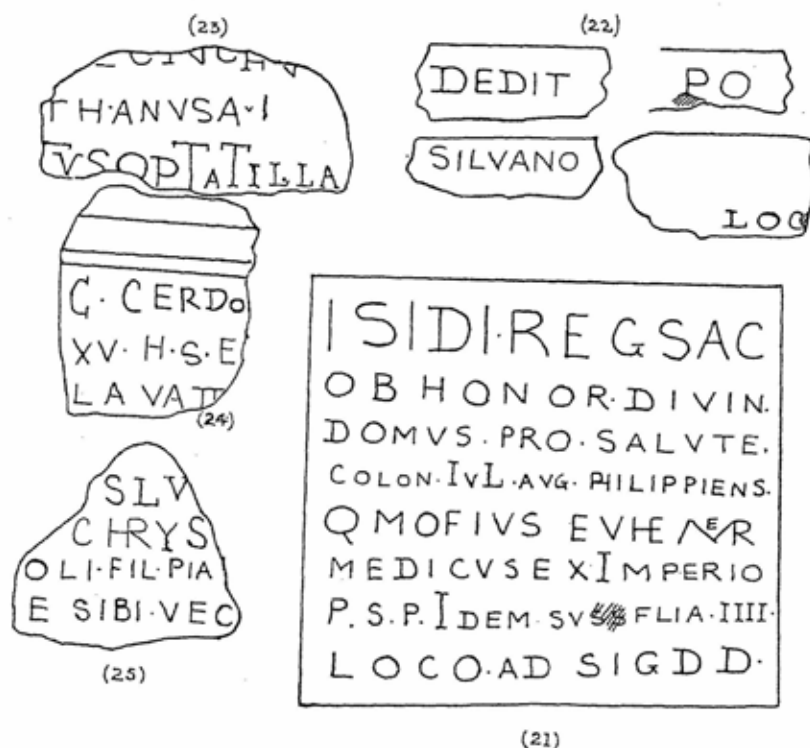 (23)
TH·ANVSA·I
TVSOPTATILLA
(22)
DEDIT
PO
SILVANO
LOC
C·CERDO
XV·H·S·E
LAVAT
(24)
SLV
CHRYS
OLI·FIL·PIA
E SIBI·VEC
(25)
ISIDI·REGSAC
OBHONOR·DIVIN.
DOMVS·PRO·SALVTE.
COLON·IVL·AVG·PHILIPPIENS.
QMOFIVS EVHE
MEDICVSEX·IMPERIO
P.S.P.IDEM·SVS FLIA·IIII·
LOCO·AD SIGDD·
(21)